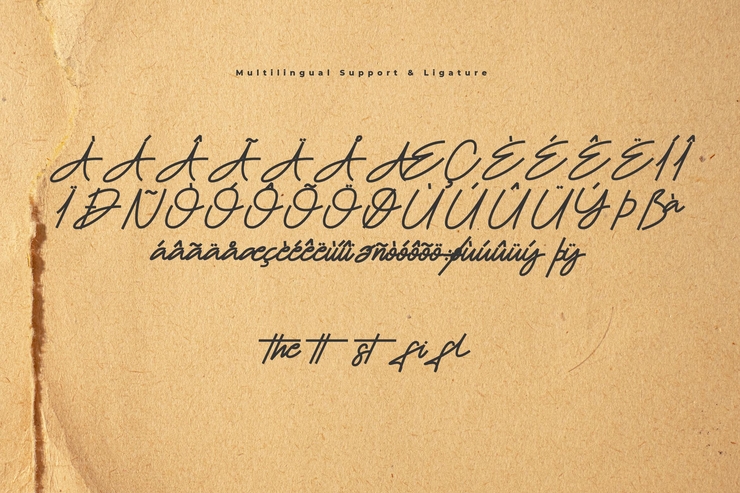 Multilingual Support & Ligature
À Á Â Ã Ä Å Æ Ç È É Ê Ë Í Î
Ï Ð Ñ Ò Ó Ô Õ Ö Ø Ù Ú Û Ü Ý Þ ß à
á â ã ä å æ ç è é ê ë ì í î ï ð ñ ò ó ô õ ö ÷ ø ù ú û ü ý þ ÿ
the tt st fi fl